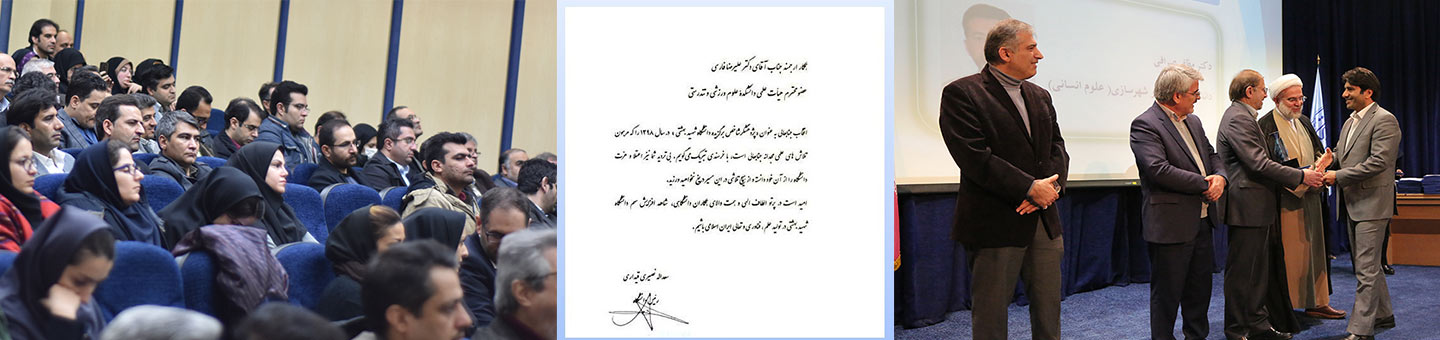 همکار ارجمند جناب آقای دکتر علیرضا فارسی
عضو محترم هیأت علمی دانشکده علوم ورزشی و تندرستی
انتخاب جنابعالی به عنوان پژوهشگر شاخص برگزیده دانشگاه شهید بهشتی، در سال ۱۳۹۸ را که مرهون
تلاش های علمی مجدانه جنابعالی است، با خرسندی تبریک می گویم. بی تردید شما نیز اعتلا و عزت
دانشگاه را از آن خود دانسته و از هیچ تلاشی در این مسیر دریغ نخواهید ورزید.
امید است در پرتو الطاف الهی و همت والای همکاران دانشگاهی، شاهد افزایش سهم دانشگاه
شهید بهشتی در تولید علم، فناوری و تعالی ایران اسلامی باشیم.
سعداله نصیری قیداری
رئیس دانشگاه
دکتر
شهرسازی (علوم انسانی)